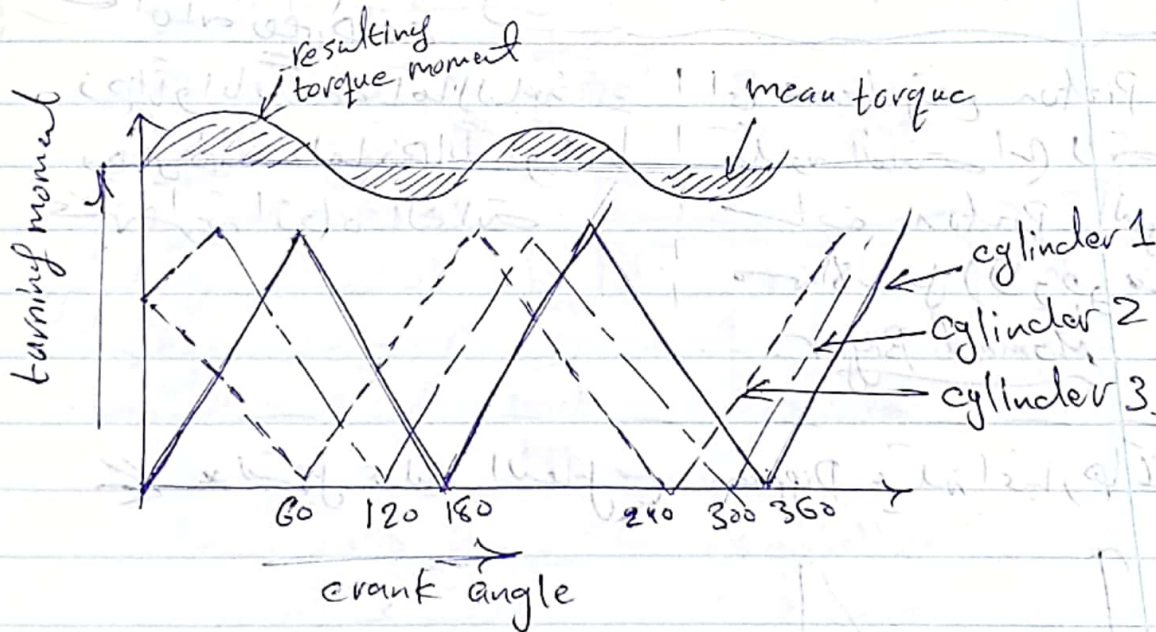 resulting
torque moment
mean torque
turning moment
cylinder 1
cylinder 2
cylinder 3
60 120 180 240 300 360
crank angle